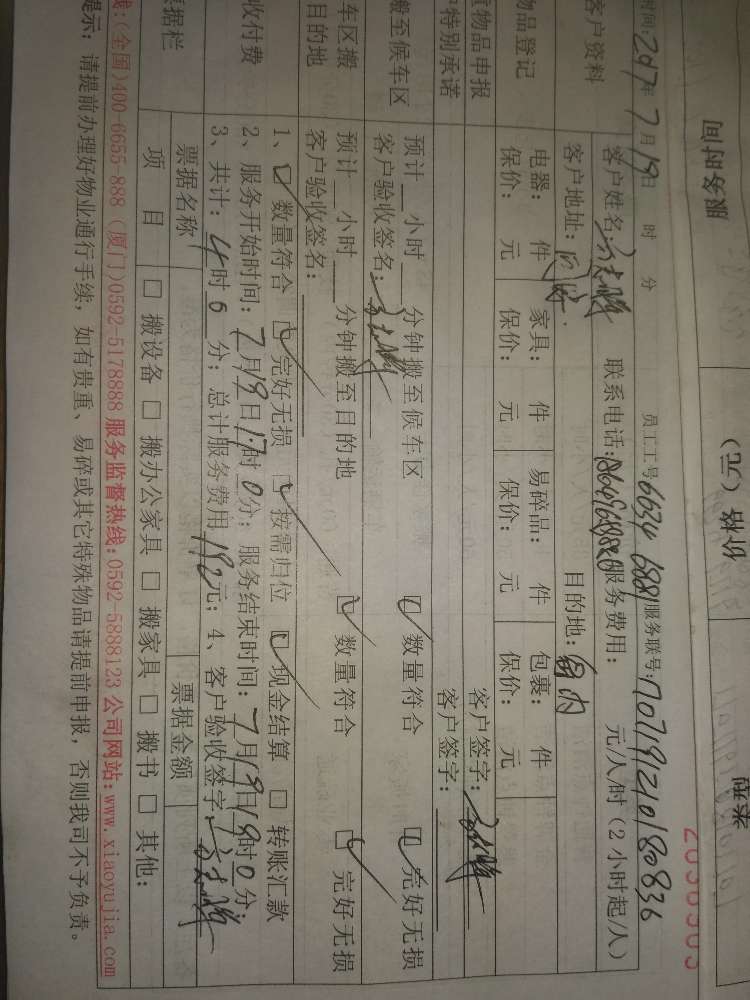 服务时间 价格(元) 类型
时间:2017年7月19日 时 分 员工工号 6634 6881 服务联号:1707191210180836
客户资料 客户姓名 联系电话: 服务费用: 元/人/时(2小时起/人)
客户地址: 目的地:岛内
物品登记 电器: 件 家具: 件 易碎品: 件 包裹: 件
保价: 元 保价: 元 保价: 元 保价: 元
重物品申报 客户签字:
特别承诺 客户签字:
搬至候车区 预计 小时 分钟搬至候车区 数量符合 完好无损
客户验收签名:
车区搬 预计 小时 分钟搬至目的地 数量符合 完好无损
目的地 客户验收签名:
收付费 1、 数量符合 完好无损 按需归位 现金结算 转账汇款
2、服务开始时间:7月19日17时0分;服务结束时间:7月19日19时0分;
3、共计:4时6分;总计服务费用192元;4、客户验收签字:
票据栏 票据名称 票据金额
项目 搬设备 搬办公家具 搬家具 搬书 其他:
线:(全国)400-6655 888 (厦门)0592-5178888 服务监督热线:0592-5888123 公司网站:www.xiaoyujia.com
提示:请提前办理好物业通行手续,如有贵重、易碎或其它特殊物品请提前申报,否则我司不予负责。